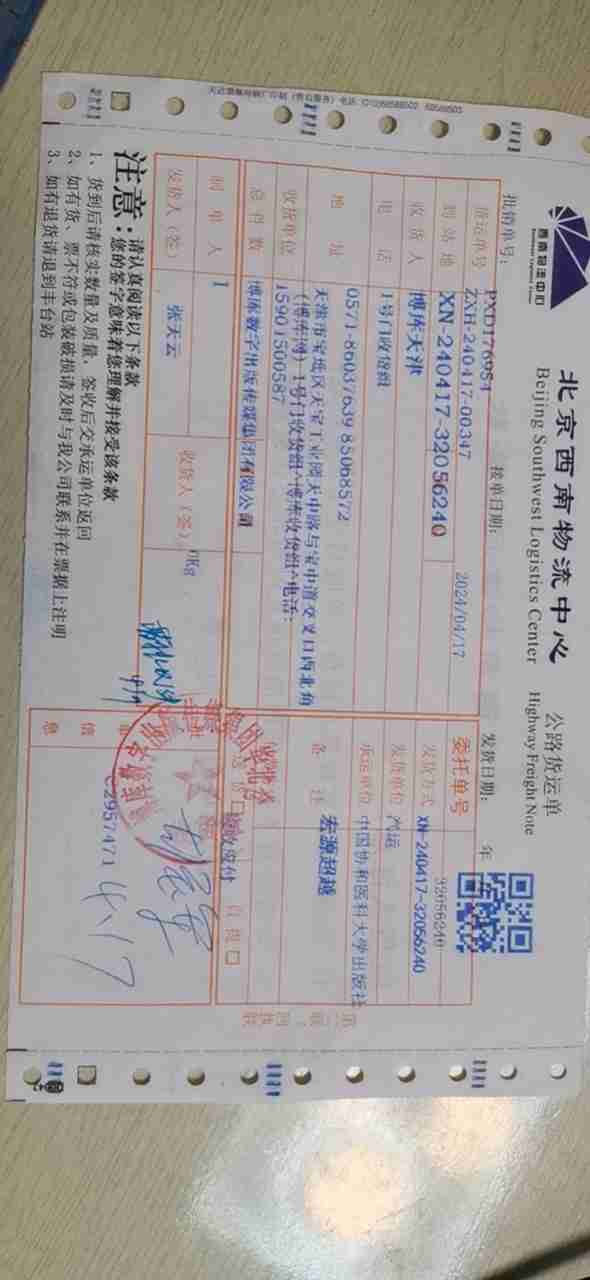 西南物流中心
北京西南物流中心
Beijing Southwest Logistics Center
公路货运单
Highway Freight Note
批销单号: PXD176984
接单日期: 2024/04/17
发货日期: 年
货运单号 ZXH-240417-00347
委托单号 32056240
到站地 XN-240417-32056240
发货方式 XN-240417-32056240
收货人 博库天津
发货单位 汽运
电话 1号门收货组
承运单位 中国协和医科大学出版社
0571-86037639 85068572
备注 宏源超越
地址 天津市宝坻区天宝工业园天中路与宝中道交叉口西北角
(博库网) 1号门收货组^博库收货组^电话:
收货单位 15901500587
总件数 博库数字出版传媒集团有限公司
接收应付
自提口
制单人 1
0Kg
发货人(签) 张天云
收货人(签)
信息
C2957471
4.17
第二联:回执联
注意:
请认真阅读以下条款
您的签字意味着您理解并接受该条款
1、货到后请核实数量及质量,签收后交承运单位返回
2、如有货、票不符或包装破损请及时与我公司联系并在票据上注明
3、如有退货请退到丰台站